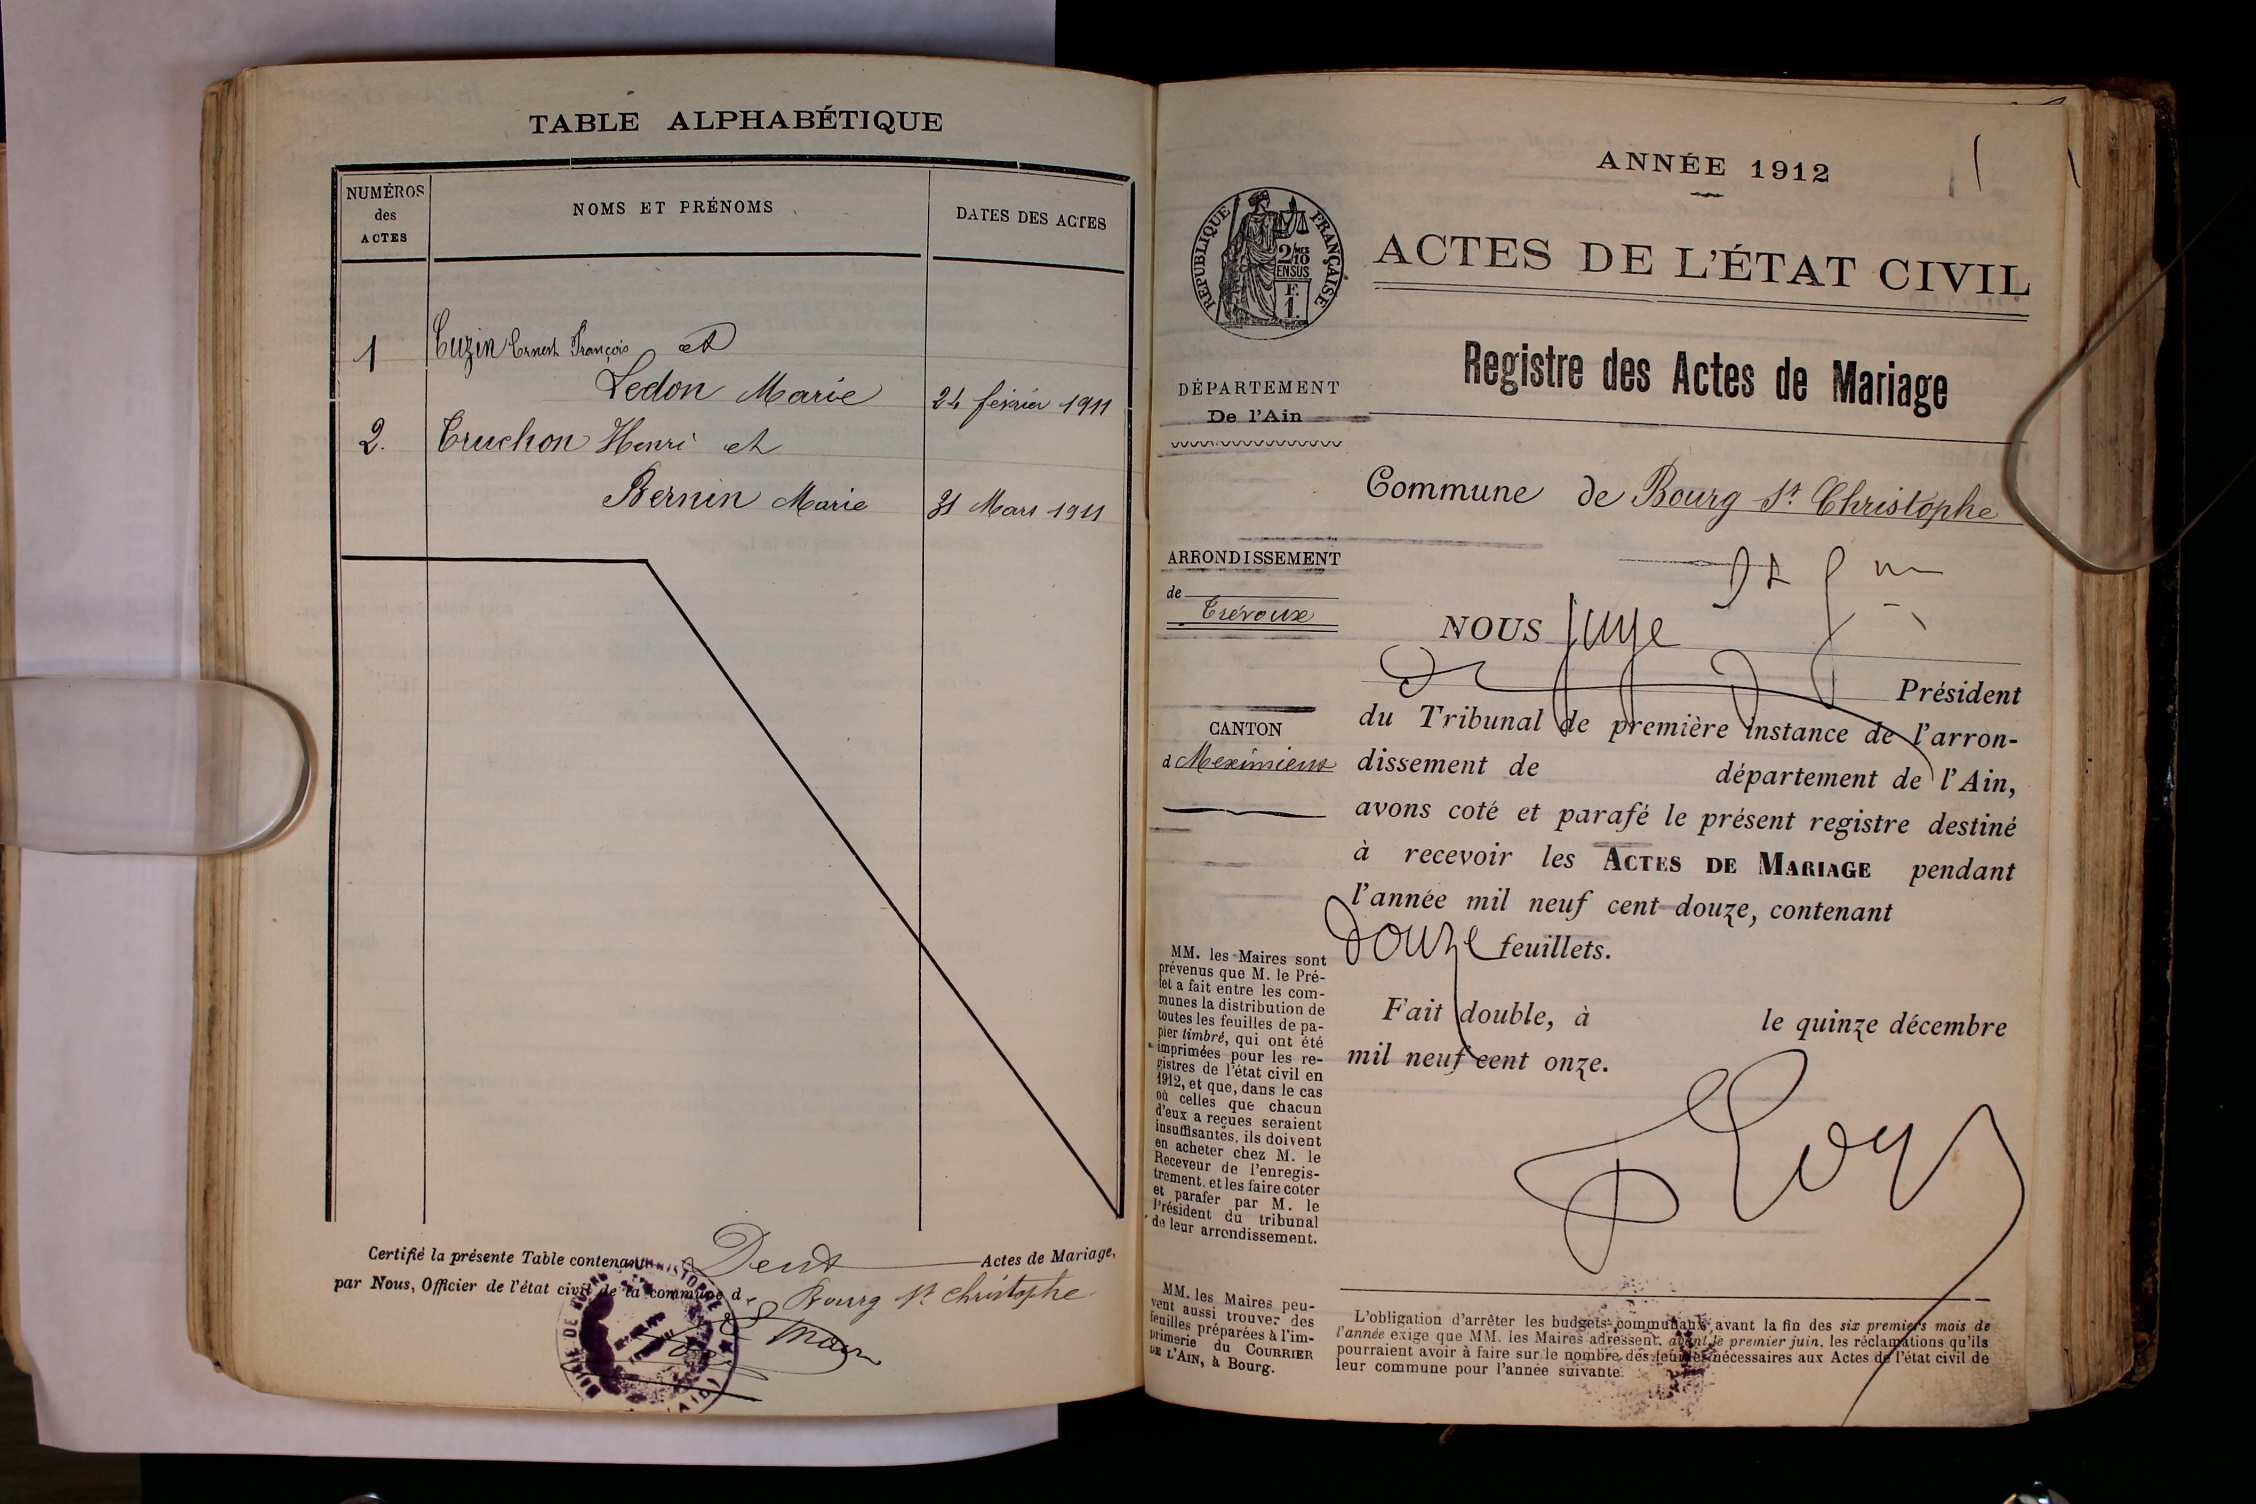 TABLE ALPHABÉTIQUE
NUMÉROS
des
ACTES
NOMS ET PRÉNOMS
DATES DES ACTES
1 Cuzin Ernest François et
Ledon Marie 24 février 1911
2. Truchon Henri et
Bernin Marie 31 Mars 1911
Certifié la présente Table contenant Deux Actes de Mariage,
par Nous, Officier de l'état civil de la commune de Bourg St Christophe
ANNÉE 1912
RÉPUBLIQUE FRANÇAISE
2/10
EN SUS
F.
1.
ACTES DE L'ÉTAT CIVIL
Registre des Actes de Mariage
DÉPARTEMENT
De l'Ain
Commune de Bourg St Christophe
ARRONDISSEMENT
de
Trévoux
CANTON
d Meximieux
NOUS juge
Président
du Tribunal de première instance de l'arron-
dissement de département de l'Ain,
avons coté et parafé le présent registre destiné
à recevoir les ACTES DE MARIAGE pendant
l'année mil neuf cent douze, contenant
douze feuillets.
Fait double, à le quinze décembre
mil neuf cent onze.
MM. les Maires sont
prévenus que M. le Pré-
fet a fait entre les com-
munes la distribution de
toutes les feuilles de pa-
pier timbré, qui ont été
imprimées pour les re-
gistres de l'état civil en
1912, et que, dans le cas
où celles que chacun
d'eux a reçues seraient
insuffisantes, ils doivent
en acheter chez M. le
Receveur de l'enregis-
trement, et les faire coter
et parafer par M. le
Président du tribunal
de leur arrondissement.
MM. les Maires peu-
vent aussi trouver des
feuilles préparées à l'im-
primerie du COURRIER
DE L'AIN, à Bourg.
L'obligation d'arrêter les budgets communaux avant la fin des six premiers mois de
l'année exige que MM. les Maires adressent, avant le premier juin, les réclamations qu'ils
pourraient avoir à faire sur le nombre des feuilles nécessaires aux Actes de l'état civil de
leur commune pour l'année suivante.